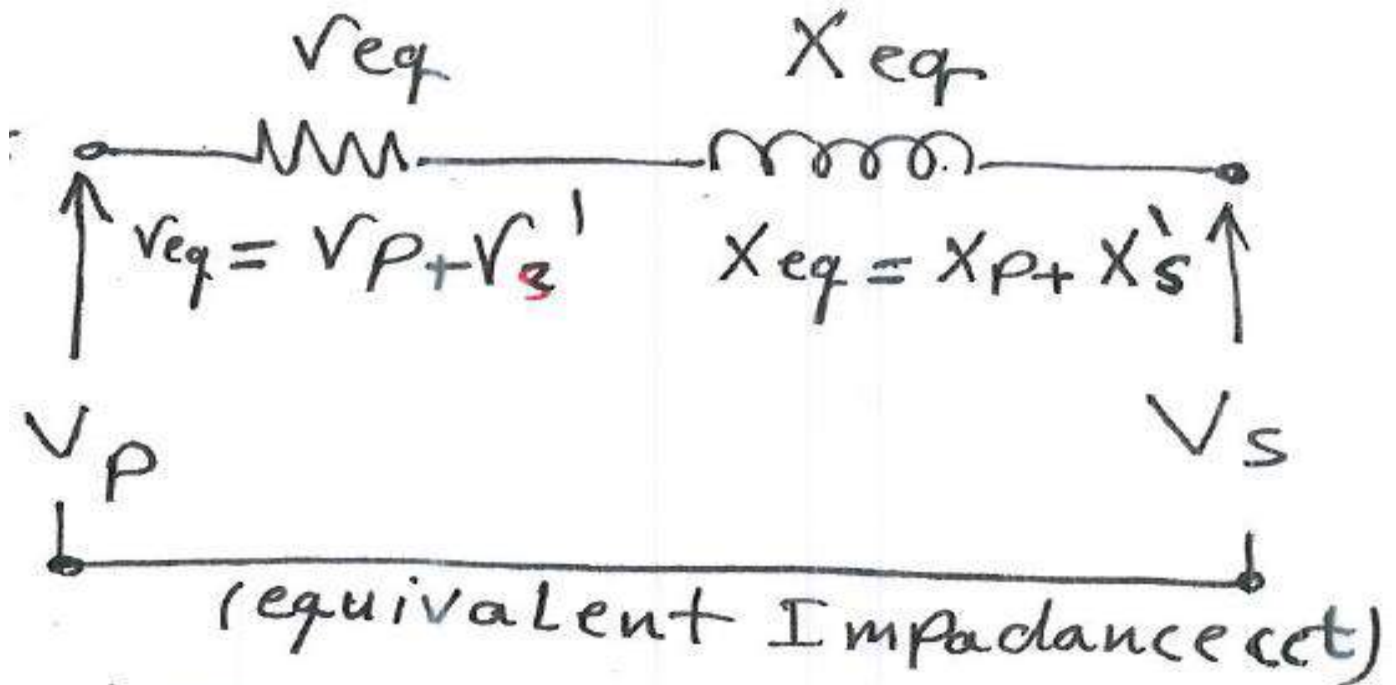 req Xeq
req = rP + rs' Xeq = XP + X's
VP Vs
(equivalent Impadance cct)